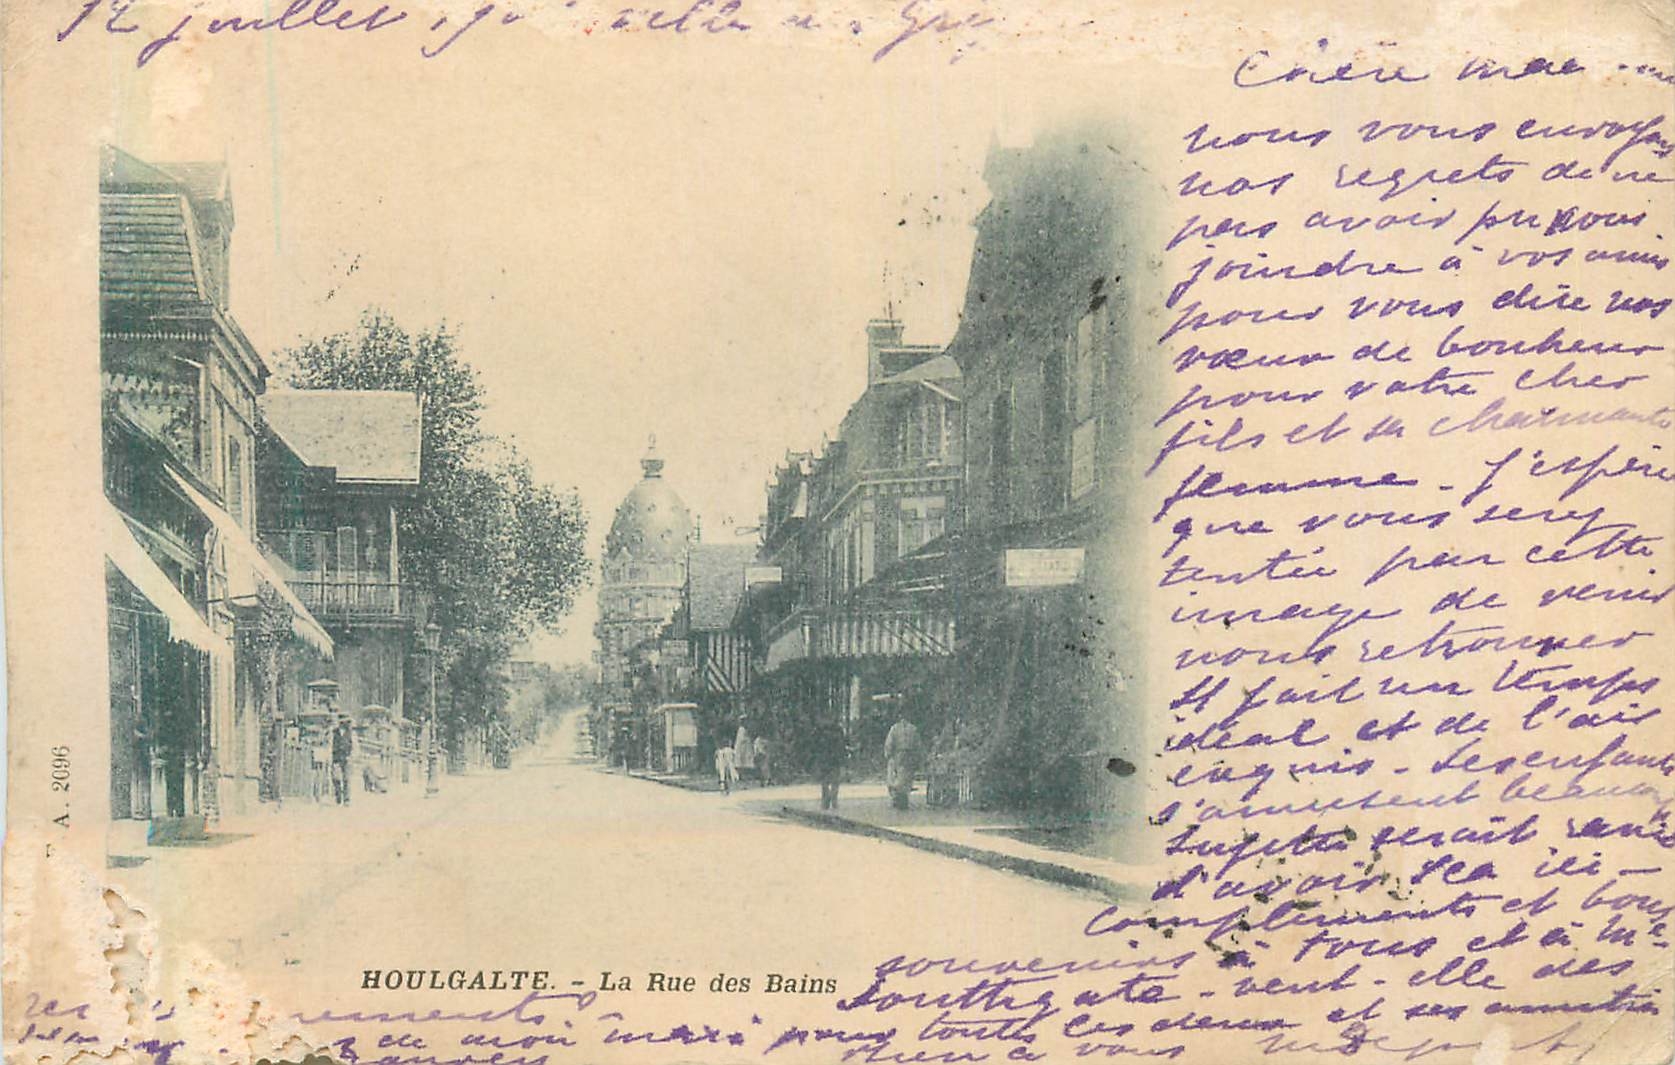 12 juillet 190
Chère
nous vous envoyons
nos regrets de ne
pas avoir pu vous
joindre à vos amis
pour vous dire nos
vœux de bonheur
pour votre cher
fils et sa charmante
femme - J'espère
que vous serez
tentée par cette
image de venir
nous retrouver
Il fait un temps
idéal et de l'air
exquis - Les enfants
s'amusent beaucoup
serait ravie
d'avoir Léa ici -
Compliments et bons
souvenirs à tous et à Me
Southgate - veut-elle des
de mon mari pour toutes les deux et ses amitiés
bien à vous
A. 2096
HOULGALTE. - La Rue des Bains